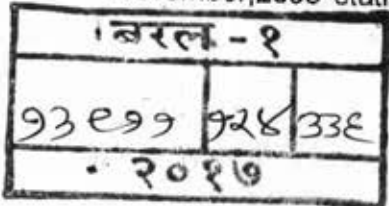 बरल - १
१३९११ १२४ ३३६
२०१७